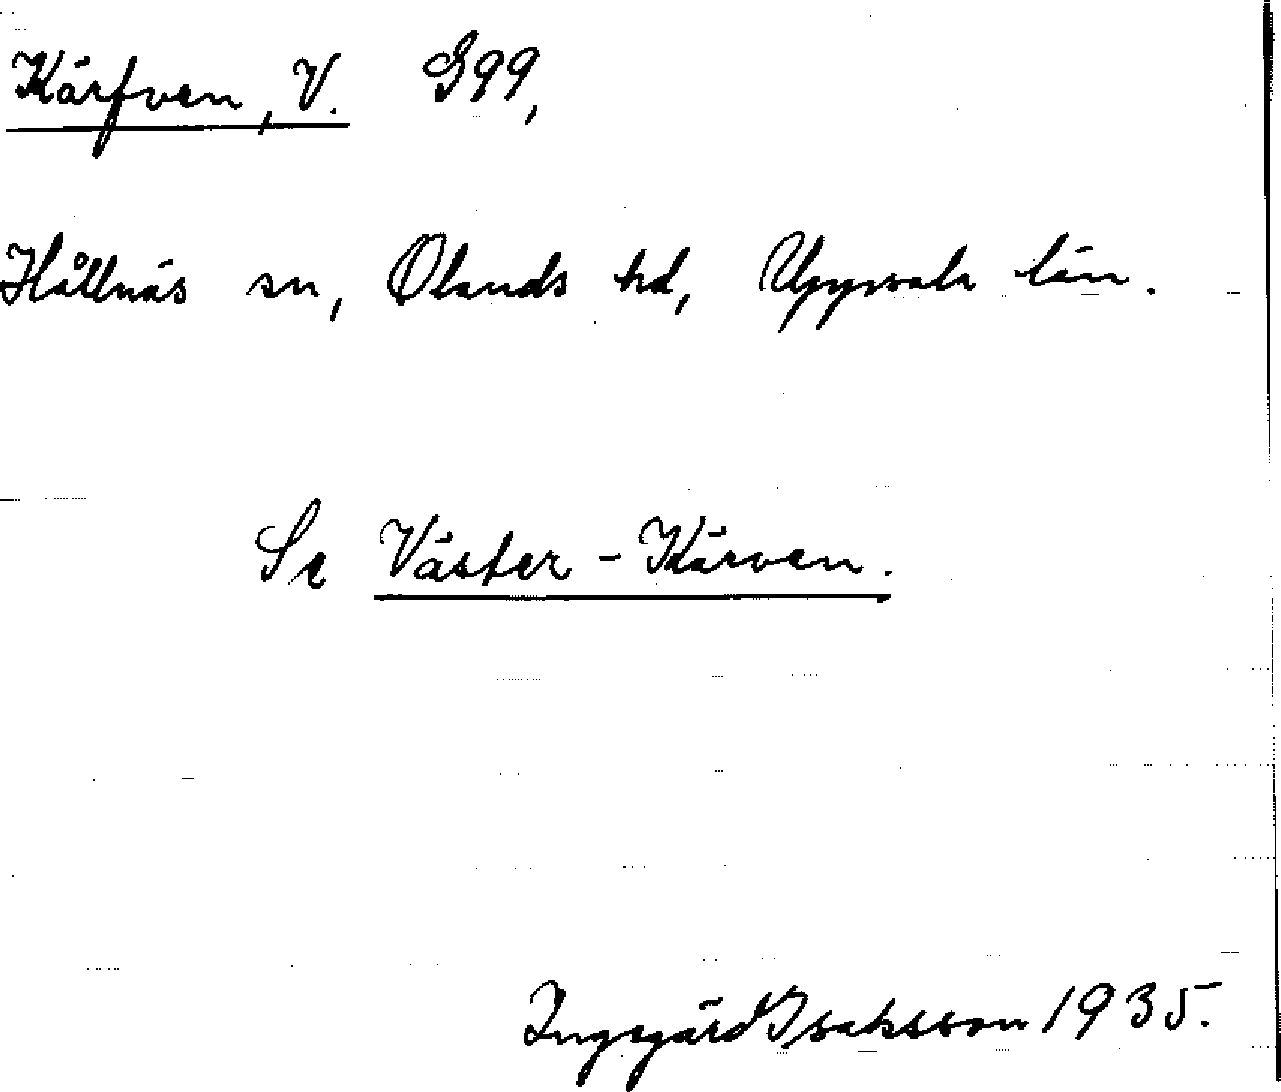 Kärfven, V. G99,
Hållnäs sn, Olands hd, Uppsala län.
Se Väster-Kärven.
Ingegärd Isaksson 1935.